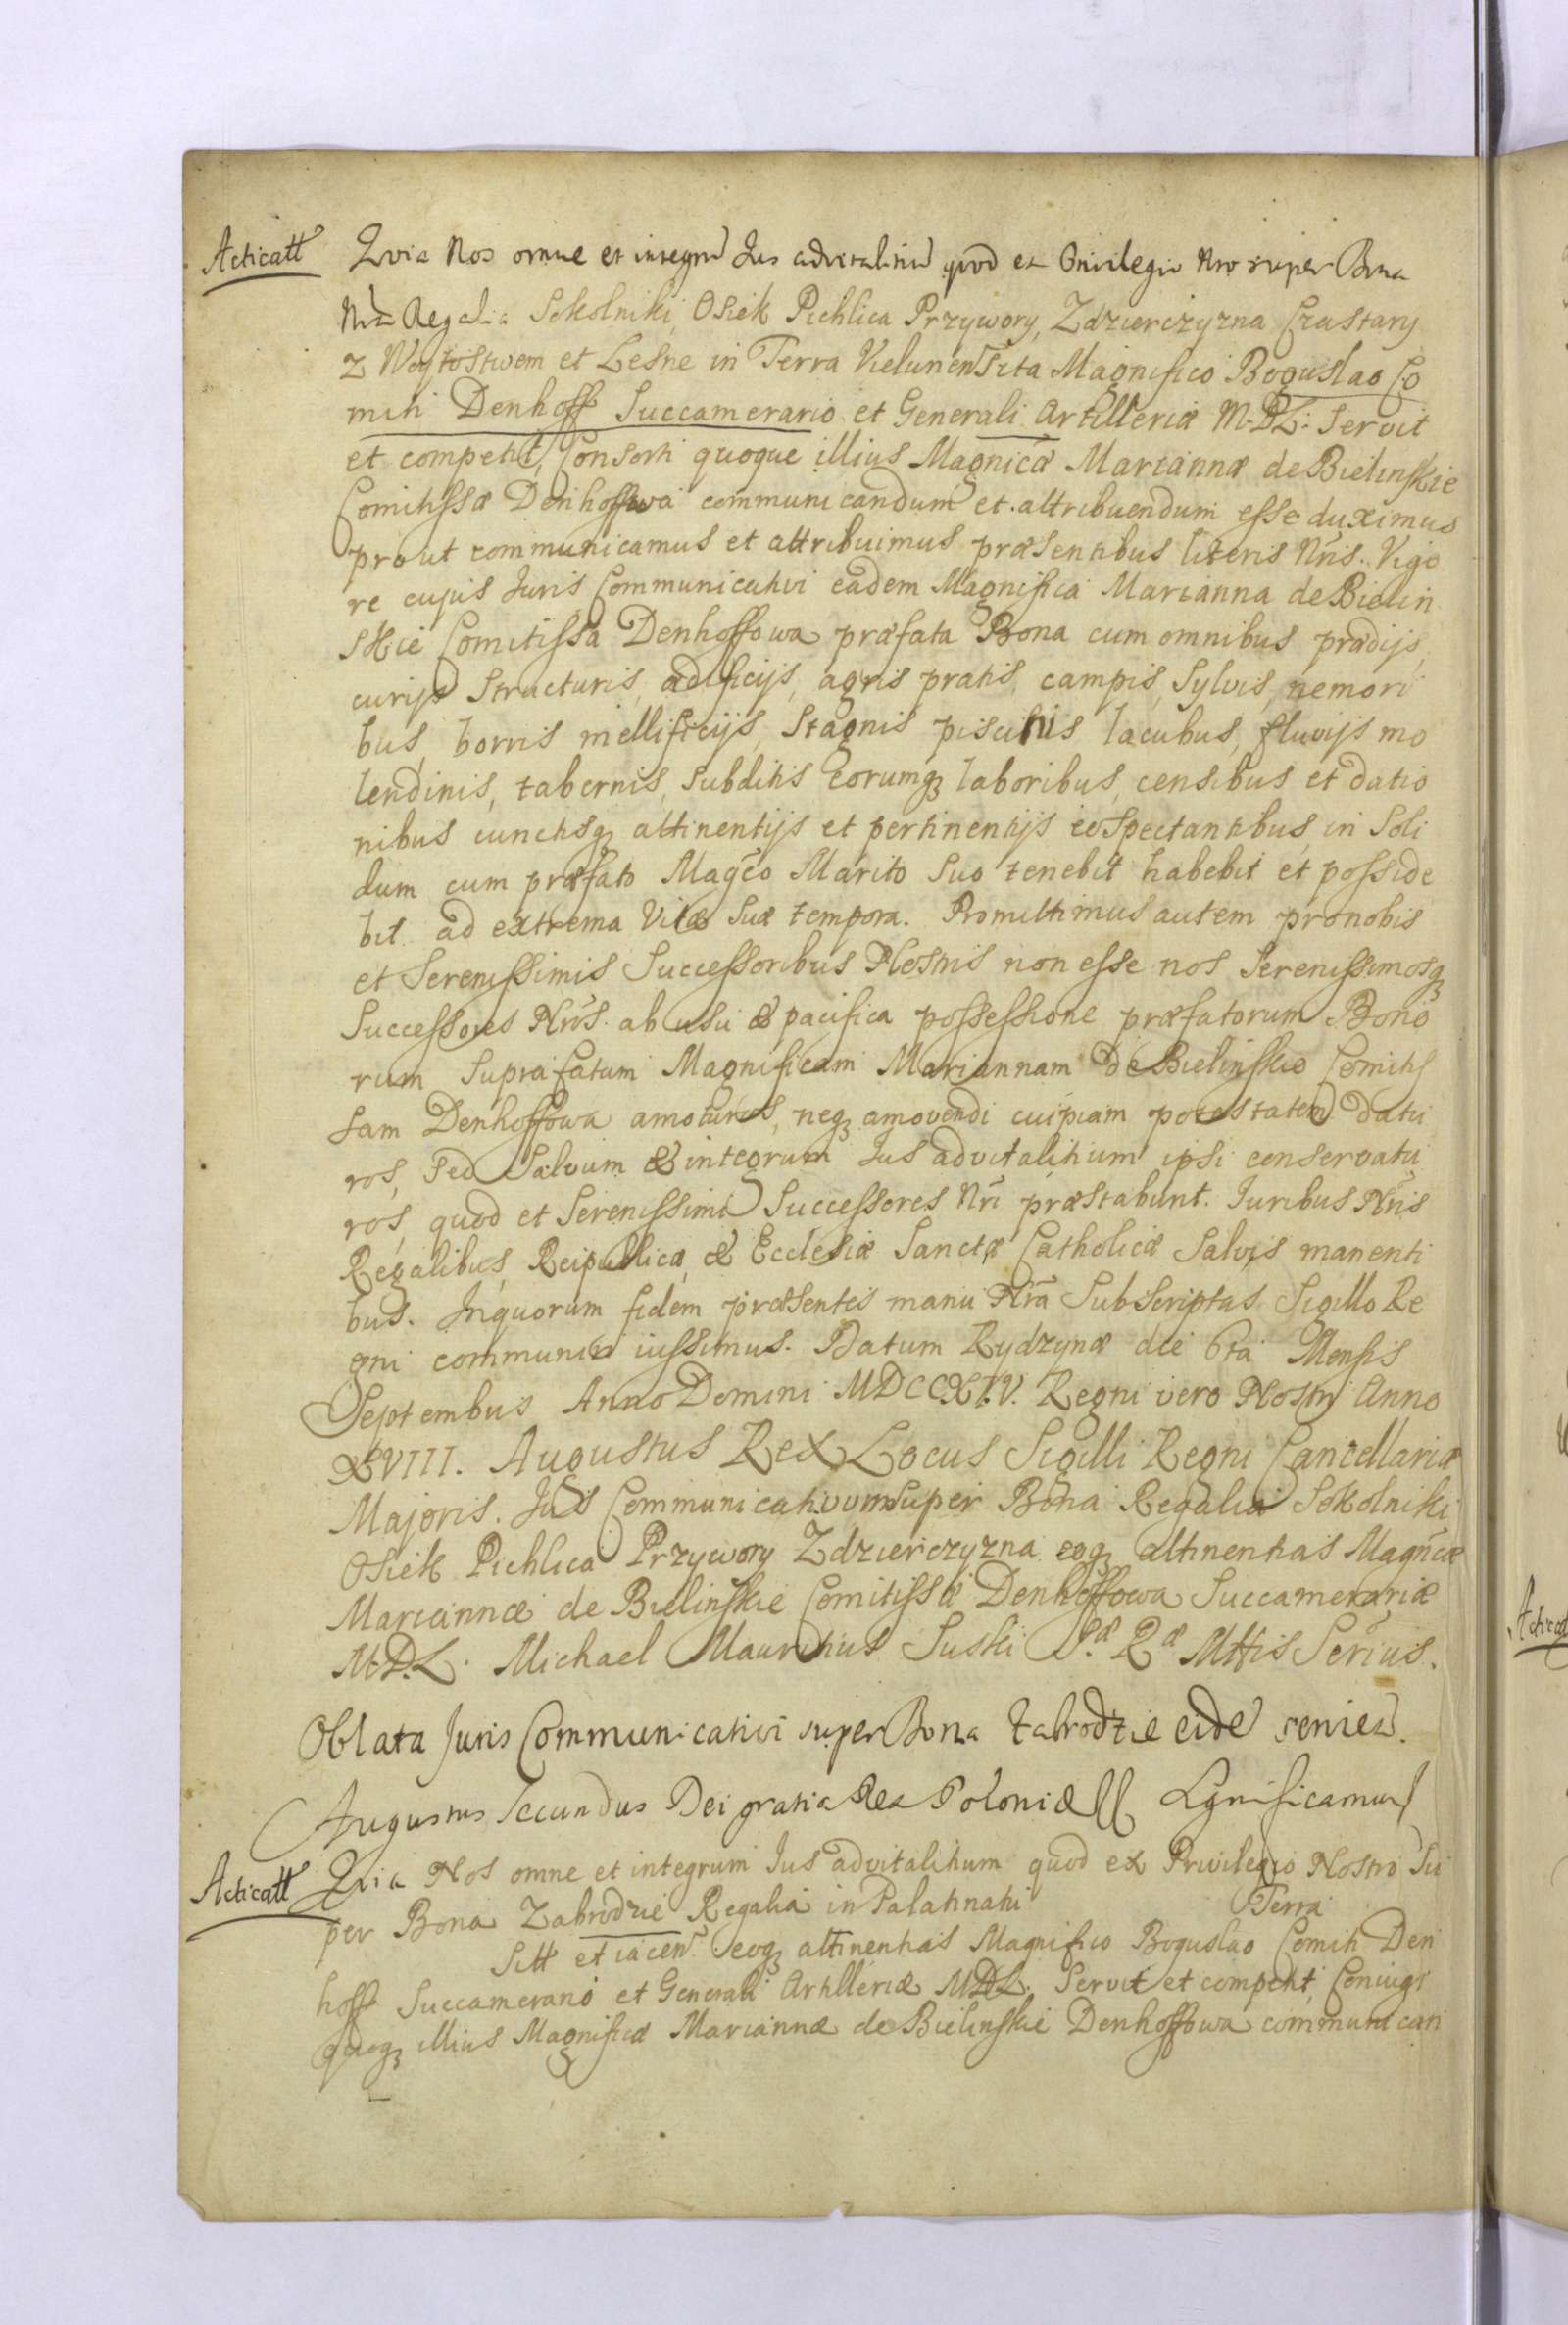 Acticatt
Quia Nos omne et integrū Jus advitalitiū quod ex Privilegio Nro super Bona
Nr̃a Regalia Sokolniki, Osiek Pichlica Przywory, Zdzierczyzna Czastary
z Woytostwem et Lesne in Terra Vielunen Sita Magnifico Boguslao Co
miti Denhoff Succamerario et Generali Artilleriæ M.D.L: Servit
et competit, Consorti quoque illius Magnicæ Mariannæ de Bielinskie
Comitissæ Denhoffowa communicandum et attribuendum esse duximus
prout communicamus et attribuimus præsentibus literis Nr̃is. Vigo
re cujus Juris Communicativi eadem Magnifica Marianna de Bielin
skie Comitissa Denhoffowa præfata Bona cum omnibus prædijs,
curijs Structuris, ædificijs, agris pratis, campis, Sylvis, nemori
bus, borris mellificijs, Stagnis piscinis lacubus, fluvijs mo
lendinis, tabernis, Subditis Eorumq3 laboribus, censibus et datio
nibus cunctisq3 attinentijs et pertinentijs eo Spectantibus, in Soli
dum cum præfato Magc̃o Marito Suo tenebit habebit et posside
bit ad extrema Vitæ Suæ tempora. Promittimus autem pro nobis
et Serenissimis Successoribus Nostris non esse nos Serenissimosq3
Successores Nr̃os ab usu & pacifica possessione præfatorum Bono
rum Suprafatam Magnificam Mariannam de Bielinskie Comitis
sam Denhoffowa amoturos, neq3 amovendi cuipiam potestatem datu
ros, Sed Salvum & integrum Jus advitalitium ipsi conservatu
ros, quod et Serenissimi Successores Nr̃i præstabunt. Juribus Nr̃is
Regalibus, Reipublicæ, & Ecclesiæ Sanctæ Catholicæ Salvis manenti
bus. In quorum fidem præsentes manu Nr̃a Subscriptas Sigillo Re
gni communiri iussimus. Datum Rydzynæ die 6ta Mensis
Septembris Anno Domini MDCCXIV. Regni vero Nostri Anno
XVIII. Augustus Rex Locus Sigilli Regni Cancellariæ
Majoris. Jus Communicativum Super Bona Regalia Sokolniki
Osiek Pichlica Przywory Zdzierczyzna eoq3 attinentias Magñcæ
Mariannæ de Bielinskie Comitissæ Denhoffowa Succamerariæ
M.D.L. Michael Mauritius Suski S.æ R.æ Mttis Sẽrius.
Oblata Juris Communicativi super Bona Zabrodzie eidē serviēn.
Augustus Secundus Dei gratia Rex Poloniæ Significamus
Acticatt
Quia Nos omne et integrum Jus advitalitium quod ex Privilegio Nostro Su
per Bona Zabrodzie Regalia in Palatinatu Terra
Sitt et iacen. eoq3 attinentias Magnifico Boguslao Comiti Den
hoff Succamerario et Generali Artilleriæ MDL. Servit et competit, Coniugi
quoq3 illius Magnificæ Mariannæ de Bielinskie Denhoffowa communican